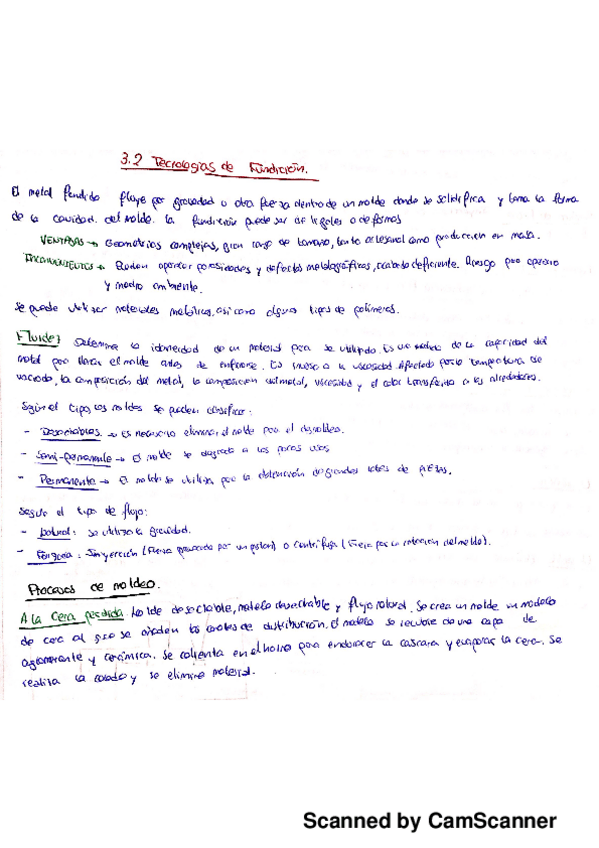 3.2 Tecnologías de Fundición.
El metal fundido fluye por gravedad u otra fuerza dentro de un molde donde se solidifica y toma la forma
de la cavidad del molde. La fundición puede ser de lingotes o de formas
VENTAJAS → Geometrías complejas, gran rango de tamaño, tanto artesanal como producción en masa.
INCONVENIENTES → Pueden aparecer porosidades y defectos metalográficos, acabado deficiente. Riesgo para operario
y medio ambiente.
Se puede utilizar materiales metálicos, así como algunos tipos de polímeros.
Fluidez: Determina la idoneidad de un material para ser utilizado. Es una medida de la capacidad del
metal para llenar el molde antes de enfriarse. Es inverso a la viscosidad. Afectado por la temperatura de
vaciado, la composición del metal, la composición del metal, viscosidad y el calor transferido a los alrededores.
Según el tipo, los moldes se pueden clasificar:
- Desechables → Es necesario eliminar el molde para el desmoldeo.
- Semi-permanente → El molde se degrada a los pocos usos
- Permanente → El molde se utiliza para la obtención de grandes lotes de piezas.
Según el tipo de flujo:
- Natural: Se utiliza la gravedad.
- Forzada: Inyección (Fuerza provocada por un pistón) o centrífuga (Fuerza por la rotación del molde).
Procesos de moldeo.
A la cera perdida Molde desechable, modelo desechable y flujo natural. Se crea un molde un modelo
de cera al que se añaden los canales de distribución. El modelo se recubre de una capa de
aglomerante y cerámica. Se calienta en el horno para endurecer la cáscara y evaporar la cera. Se
realiza la colada y se elimina material.
Scanned by CamScanner